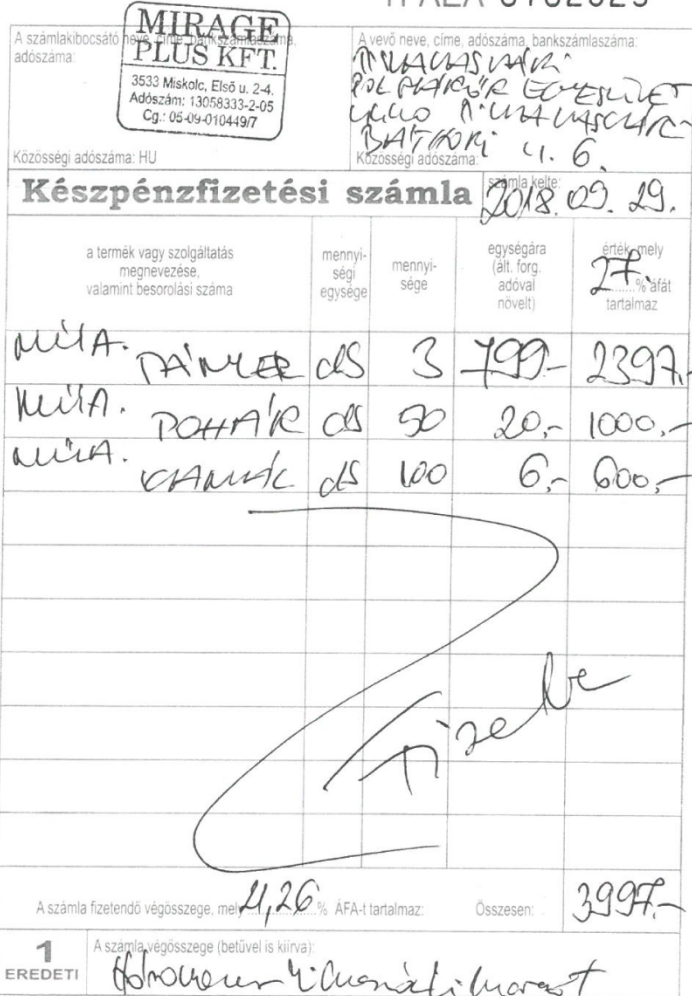 A számlakibocsátó neve, címe, bankszámlaszáma,
adószáma:
MIRAGE
PLUS KFT.
3533 Miskolc, Első u. 2-4.
Adószám: 13058333-2-05
Cg.: 05-09-010449/7
Közösségi adószáma: HU
A vevő neve, címe, adószáma, bankszámlaszáma:
POLGÁRŐR EGYESÜLET
BÁTHORI U. 6.
Közösségi adószáma:
Készpénzfizetési számla
számla kelte:
2018. 09. 29.
a termék vagy szolgáltatás
megnevezése,
valamint besorolási száma
mennyi-
ségi
egysége
mennyi-
sége
egységára
(ált. forg.
adóval
növelt)
érték, mely
27 % áfát
tartalmaz
MŰA. TÁNYÉR db 3 799.- 2397.-
MŰA. POHÁR db 50 20,- 1000,-
MŰA. KANÁL db 100 6,- 600,-
Fizetve
A számla fizetendő végösszege, mely 21,26 % ÁFA-t tartalmaz: Összesen: 3997.-
1
EREDETI
A számla végösszege (betűvel is kiírva):